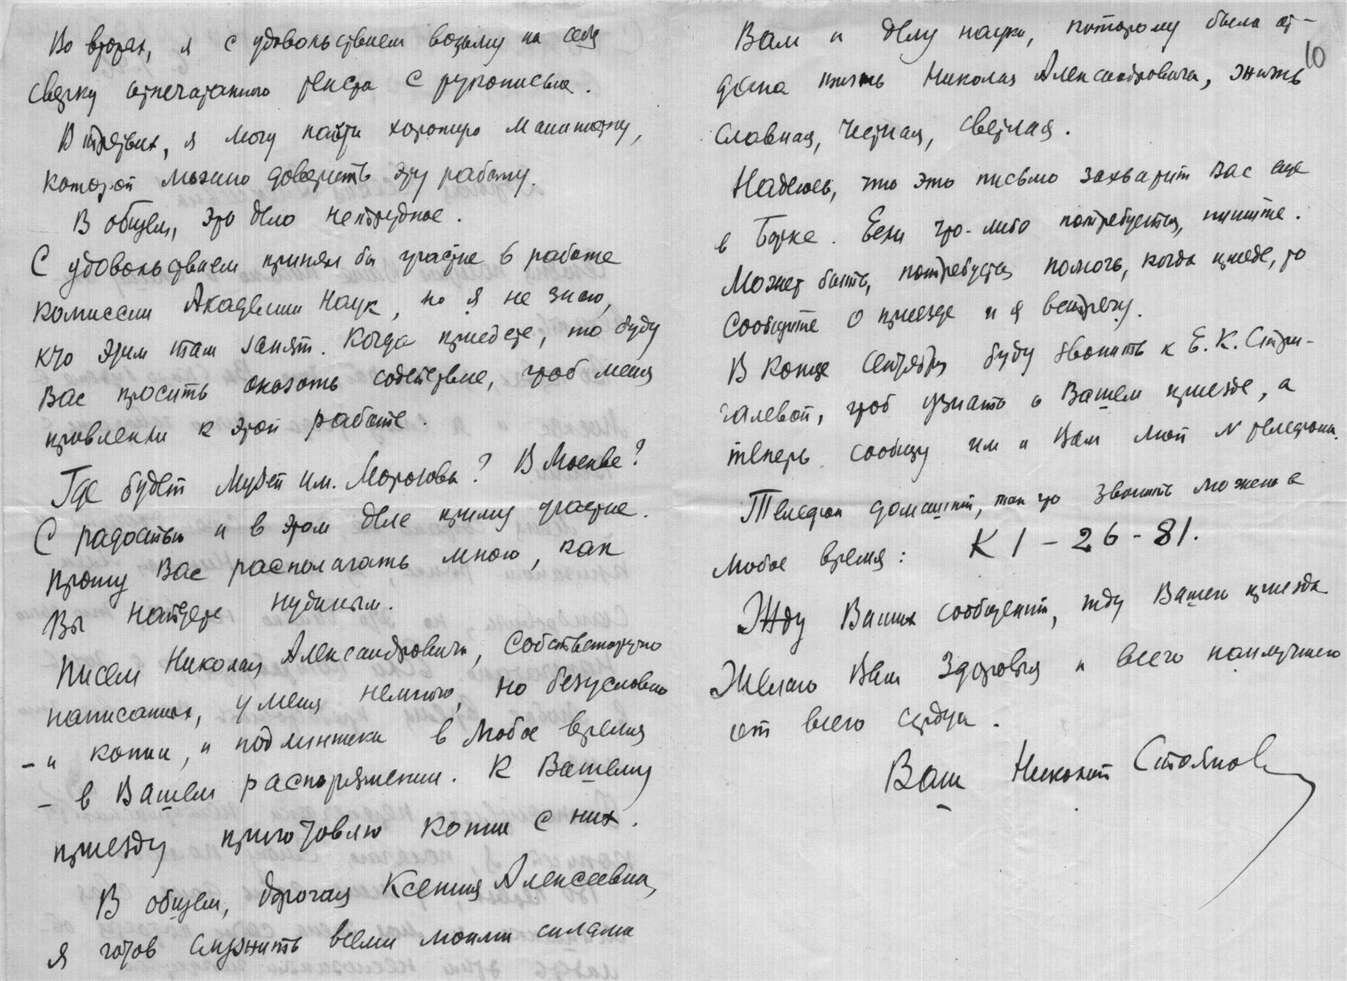 Во вторых, я с удовольствием возьму на себя
сверку отпечатанного текста с рукописью.
В третьих, я могу найти хорошую машинистку,
которой можно доверить эту работу.
В общем, это дело нетрудное.
С удовольствием принял бы участие в работе
комиссии Академии Наук, но я не знаю,
кто этим там занят. Когда приедете, то буду
Вас просить оказать содействие, чтоб меня
привлекли к этой работе.
Где будет Музей им. Морозова? В Москве?
С радостью и в этом деле приму участие.
Прошу Вас располагать мною, как
Вы найдете нужным.
Писем Николая Александровича, собственноручно
написанных, у меня немного, но безусловно
– и копии, и подлинники в любое время
– в Вашем распоряжении. К Вашему
приезду приготовлю копии с них.
В общем, дорогая Ксения Алексеевна,
я готов служить всеми моими силами
10
Вам и делу науки, которому была от-
дана жизнь Николая Александровича, жизнь
славная, честная, светлая.
Надеюсь, что это письмо захватит Вас еще
в Борке. Если что-либо потребуется, пишите.
Может быть, потребуется помочь, когда приеде, то
сообщите о приезде и я встречу.
В конце сентября буду звонить к Е. К. Стри-
галевой, чтоб узнать о Вашем приезде, а
теперь сообщу им и Вам мой N телефона.
Телефон домашний, так что звонить можно в
любое время: К 1 – 26 - 81.
Жду Ваших сообщений, жду Вашего приезда
Желаю Вам здоровья и всего наилучшего
от всего сердца.
Ваш Николай Стоянов